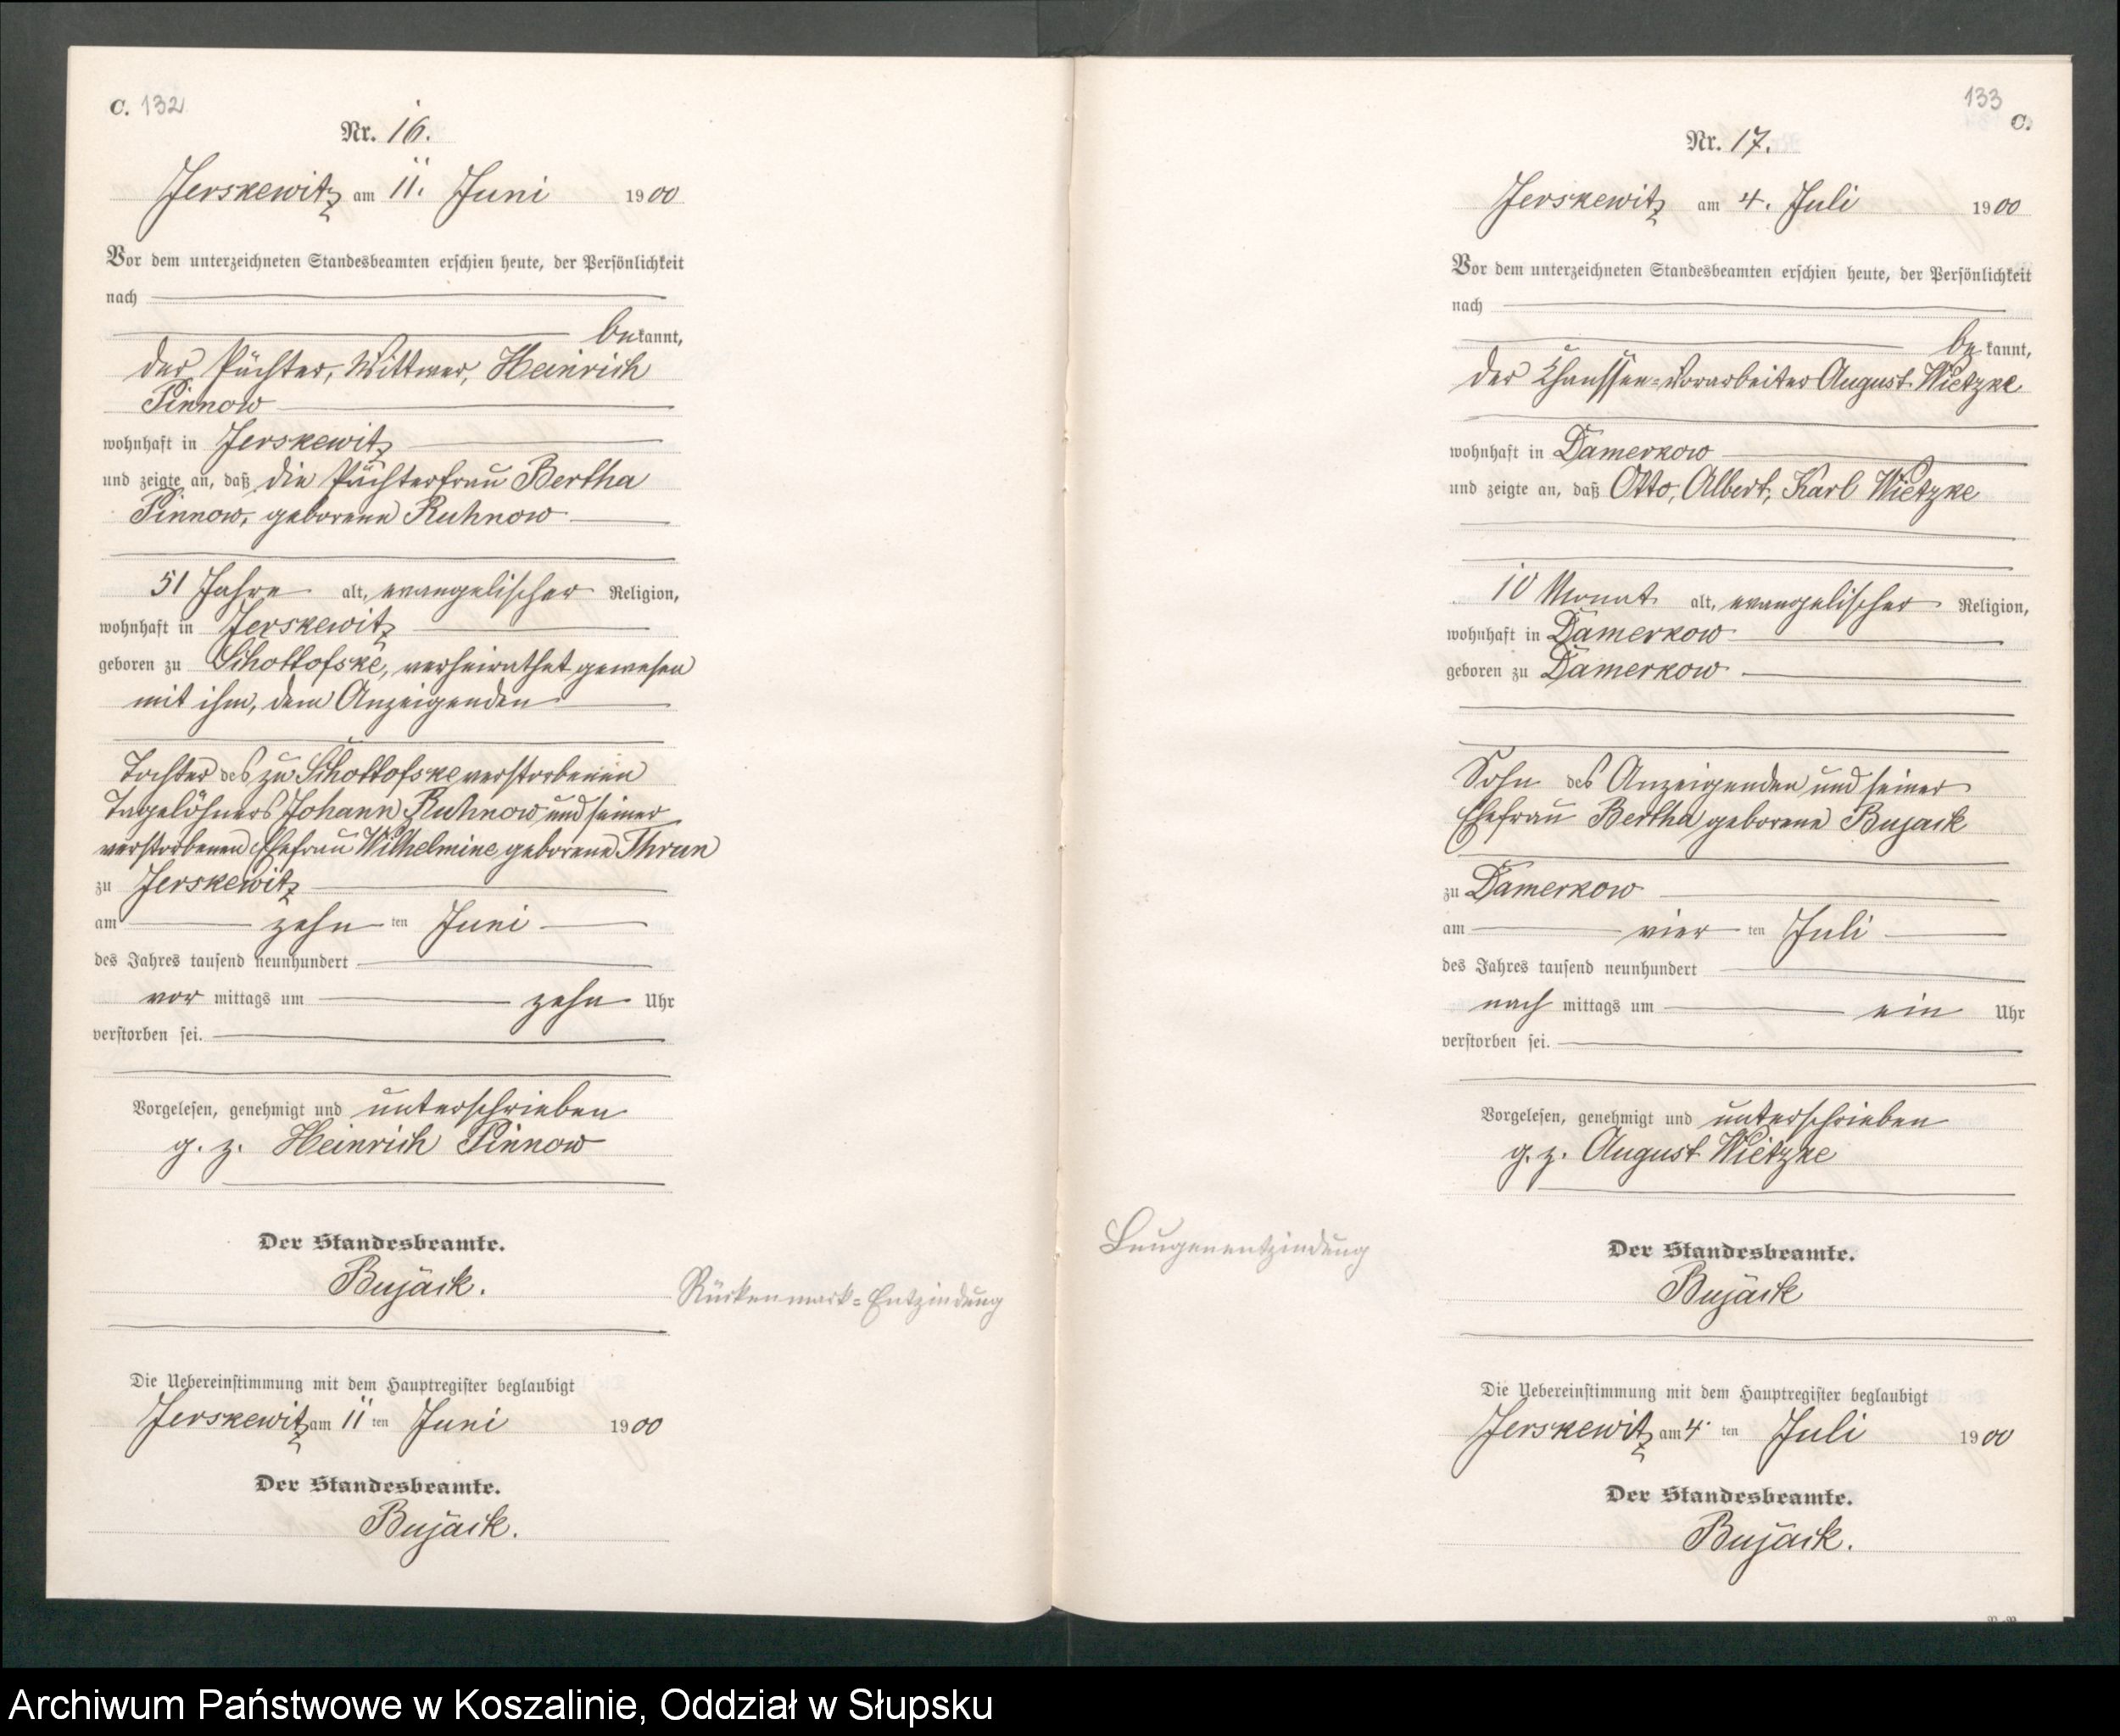 C. 132
Nr. 16.
Jerskewitz am 11. Juni 1900
Vor dem unterzeichneten Standesbeamten erschien heute, der Persönlichkeit
nach
bekannt,
der Pächter, Wittwer, Heinrich
Pinnow
wohnhaft in Jerskewitz
und zeigte an, daß die Pächterfrau Bertha
Pinnow, geborene Ruhnow
51 Jahre alt, evangelischer Religion,
wohnhaft in Jerskewitz
geboren zu Schottofske, verheirathet gewesen
mit ihm, dem Anzeigenden
Tochter des zu Schottofske verstorbenen
Tagelöhners Johann Ruhnow und seiner
verstorbenen Ehefrau Wilhelmine geborene Thrun
zu Jerskewitz
am zehn ten Juni
des Jahres tausend neunhundert
vor mittags um zehn Uhr
verstorben sei.
Vorgelesen, genehmigt und unterschrieben
g. z. Heinrich Pinnow
Der Standesbeamte.
Bujack.
Rückenmark-Entzindung
Die Uebereinstimmung mit dem Hauptregister beglaubigt
Jerskewitz am 11 ten Juni 1900
Der Standesbeamte.
Bujack.
133
C.
Nr. 17.
Jerskewitz am 4. Juli 1900
Vor dem unterzeichneten Standesbeamten erschien heute, der Persönlichkeit
nach
bekannt,
der Chaussee-Vorarbeiter August Wietzke
wohnhaft in Damerkow
und zeigte an, daß Otto, Albert, Karl Wietzke
10 Monat alt, evangelischer Religion,
wohnhaft in Damerkow
geboren zu Damerkow
Sohn des Anzeigenden und seiner
Ehefrau Bertha geborene Bujack
zu Damerkow
am vier ten Juli
des Jahres tausend neunhundert
nach mittags um ein Uhr
verstorben sei.
Vorgelesen, genehmigt und unterschrieben
g. z. August Wietzke
Lungenentzindung
Der Standesbeamte.
Bujack
Die Uebereinstimmung mit dem Hauptregister beglaubigt
Jerskewitz am 4 ten Juli 1900
Der Standesbeamte.
Bujack.
Archiwum Państwowe w Koszalinie, Oddział w Słupsku